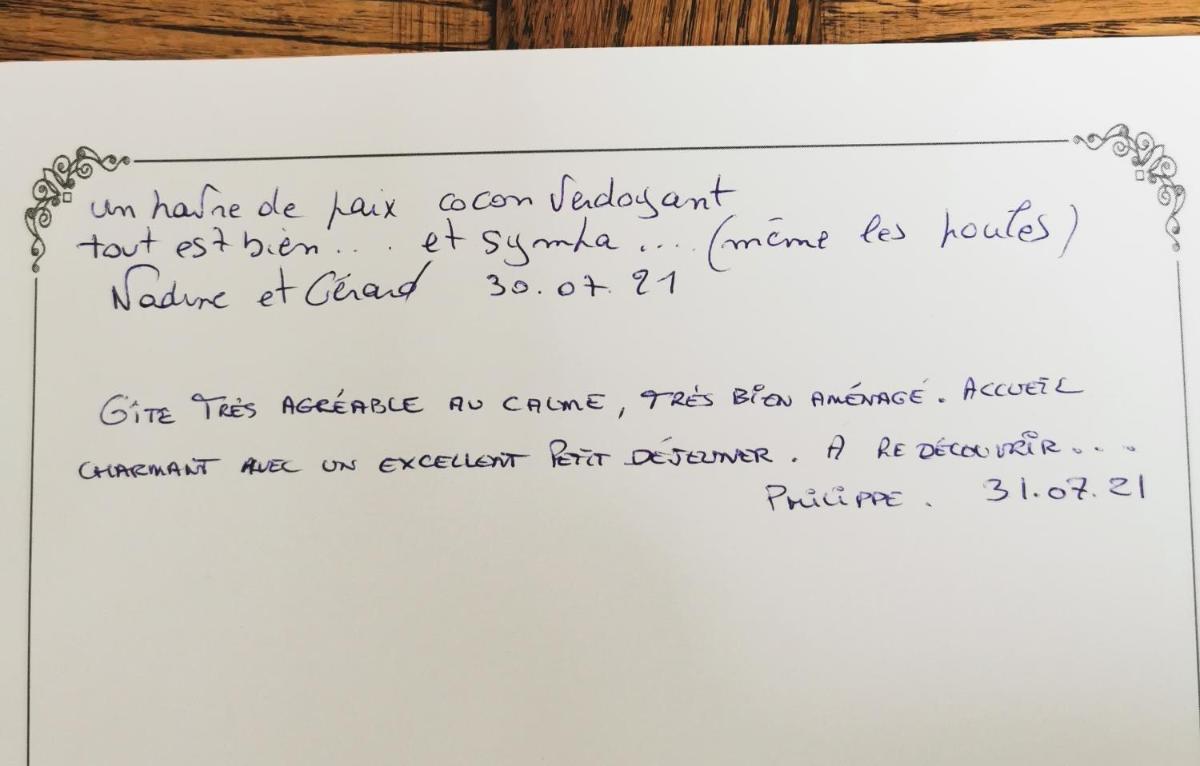 un havre de paix cocon verdoyant
tout est bien.... et sympa.... (même les poules)
Nadine et Gérard 30.07.21
GÎTE TRÈS AGRÉABLE AU CALME, TRÈS BIEN AMÉNAGÉ. ACCUEIL
CHARMANT AVEC UN EXCELLENT PETIT DÉJEUNER. A REDÉCOUVRIR....
PHILIPPE. 31.07.21